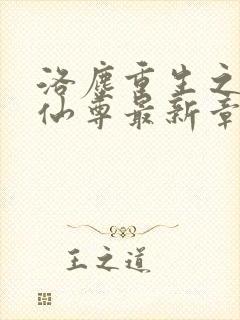 洛塵重生之
仙尊最新章
王之道